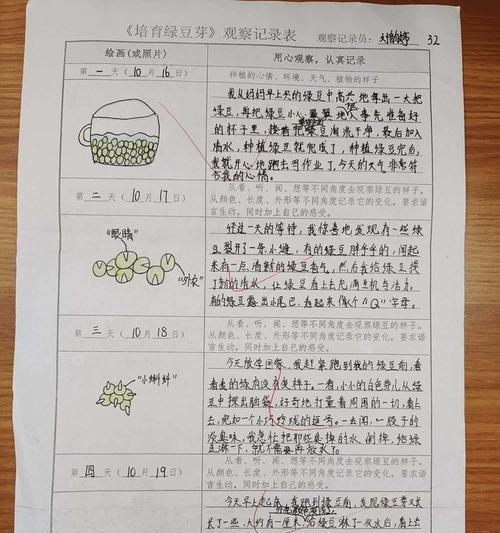 《培育绿豆芽》观察记录表 观察记录员： 32
绘画(或照片)
用心观察，认真记录
第 一 天（ 10 月 16 日）
种植的心情、环境、天气、植物的样子
我从妈妈早上买的绿豆中高兴地拿出一大把
绿豆，再把绿豆小心翼翼地放入事先准备好
的杯子里，接着把绿豆淘洗干净，最后加入
清水，种植绿豆就完成了，种植绿豆完后，我
就开心地跑去写作业了，今天的天气非常符
合我的心情。
第 二 天（ 10 月 17 日）
从看、听、闻、想等不同角度去观察绿豆的样子。
从颜色、长度、外形等不同角度记录它的变化。要求语
言生动，同时加上自己的感受。
“眼睛”
“外衣”
经过一天的等待，我惊喜地发现有一些绿
豆裂开了一条小缝，有的绿豆胖乎乎的，闻起
来有一点清新的绿豆香气，然后我给绿豆换
了新的清水，让绿豆看上去充满生机与活力，
有的绿豆露出小尾巴，看起来像个“Q”字母。
第 三 天（ 10 月 18 日）
从看、听、闻、想等不同角度去观察绿豆的样子。
从颜色、长度、外形等不同角度记录它的变化。要求语
言生动，同时加上自己的感受。
“小蝌蚪”
今天放学回家，我赶紧跑到我的绿豆前，看
看我的绿豆有没有变样子。一看，小小的白色芽儿从绿
豆中探出脑袋，好奇地打量着周围的一切，看上
去，宛如一个小巧玲珑的逗号。一去闻，一股子的
没臭味，我急忙把那些臭掉的水 倒掉，给绿
豆淋一下，就不需要再放水了。
第 四 天（ 10 月 19 日）
从看、听、闻、想等不同角度去观察绿豆的样子。
从颜色、长度、外形等不同角度记录它的变化。要求语
言生动，同时加上自己的感受。
今天早上起床，我跑到绿豆前，发现绿豆芽又长
长了一些，大约有一厘米，给绿豆淋了一次水后，看上去